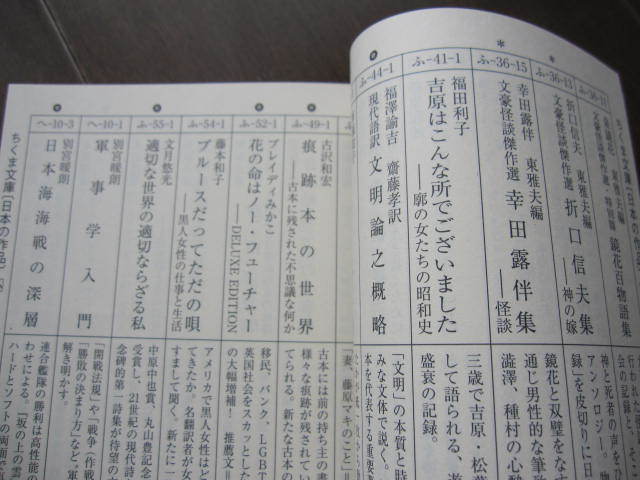 ふ-36-11
文豪怪談傑作選・特別篇 鏡花百物語集
ふ-36-13
折口信夫 東雅夫編
文豪怪談傑作選 折口信夫集
——神の嫁
神と死者の声をひ
アンソロジー。物
録」を皮切りに日
*
ふ-36-15
幸田露伴 東雅夫編
文豪怪談傑作選 幸田露伴集
——怪談
鏡花と双璧をなす
通じ男性的な筆致
澁澤、種村の心酔
*
ふ-41-1
福田利子
吉原はこんな所でございました
——廓の女たちの昭和史
三歳で吉原・松葉
して語られる、遊
盛衰の記録。
ふ-44-1
福澤諭吉 齋藤孝訳
現代語訳 文明論之概略
「文明」の本質と時
みな文体で説く。
本を代表する重要著
妻、藤原マキのこと」=
ふ-49-1
古沢和宏
痕跡本の世界
——古本に残された不思議な何か
古本には前の持ち主の書
様々な痕跡が残されてい
られてる。新たな古本の
ふ-52-1
ブレイディみかこ
花の命はノー・フューチャー
——DELUXE EDITION
移民、パンク、LGBT
英国社会をスカッとした
の大幅増補! 推薦文=
ふ-54-1
藤本和子
ブルースだってただの唄
——黒人女性の仕事と生活
アメリカで黒人女性はど
てきたか。名翻訳者が女
すまして聞く、新たに一
ふ-55-1
文月悠光
適切な世界の適切ならざる私
中原中也賞、丸山豊記念
受賞し、21世紀の現代詩
念碑的第一詩集が待望の文
へ-10-1
別宮暖朗
軍事学入門
「開戦法規」や「戦争(作戦
「勝敗の決まり方」など、軍
解き明かす。
へ-10-3
別宮暖朗
日本海海戦の深層
連合艦隊の勝利は高性能の
わせによる。『坂の上の雲
ハードとソフトの両面で
ちくま文庫(日本の作品)